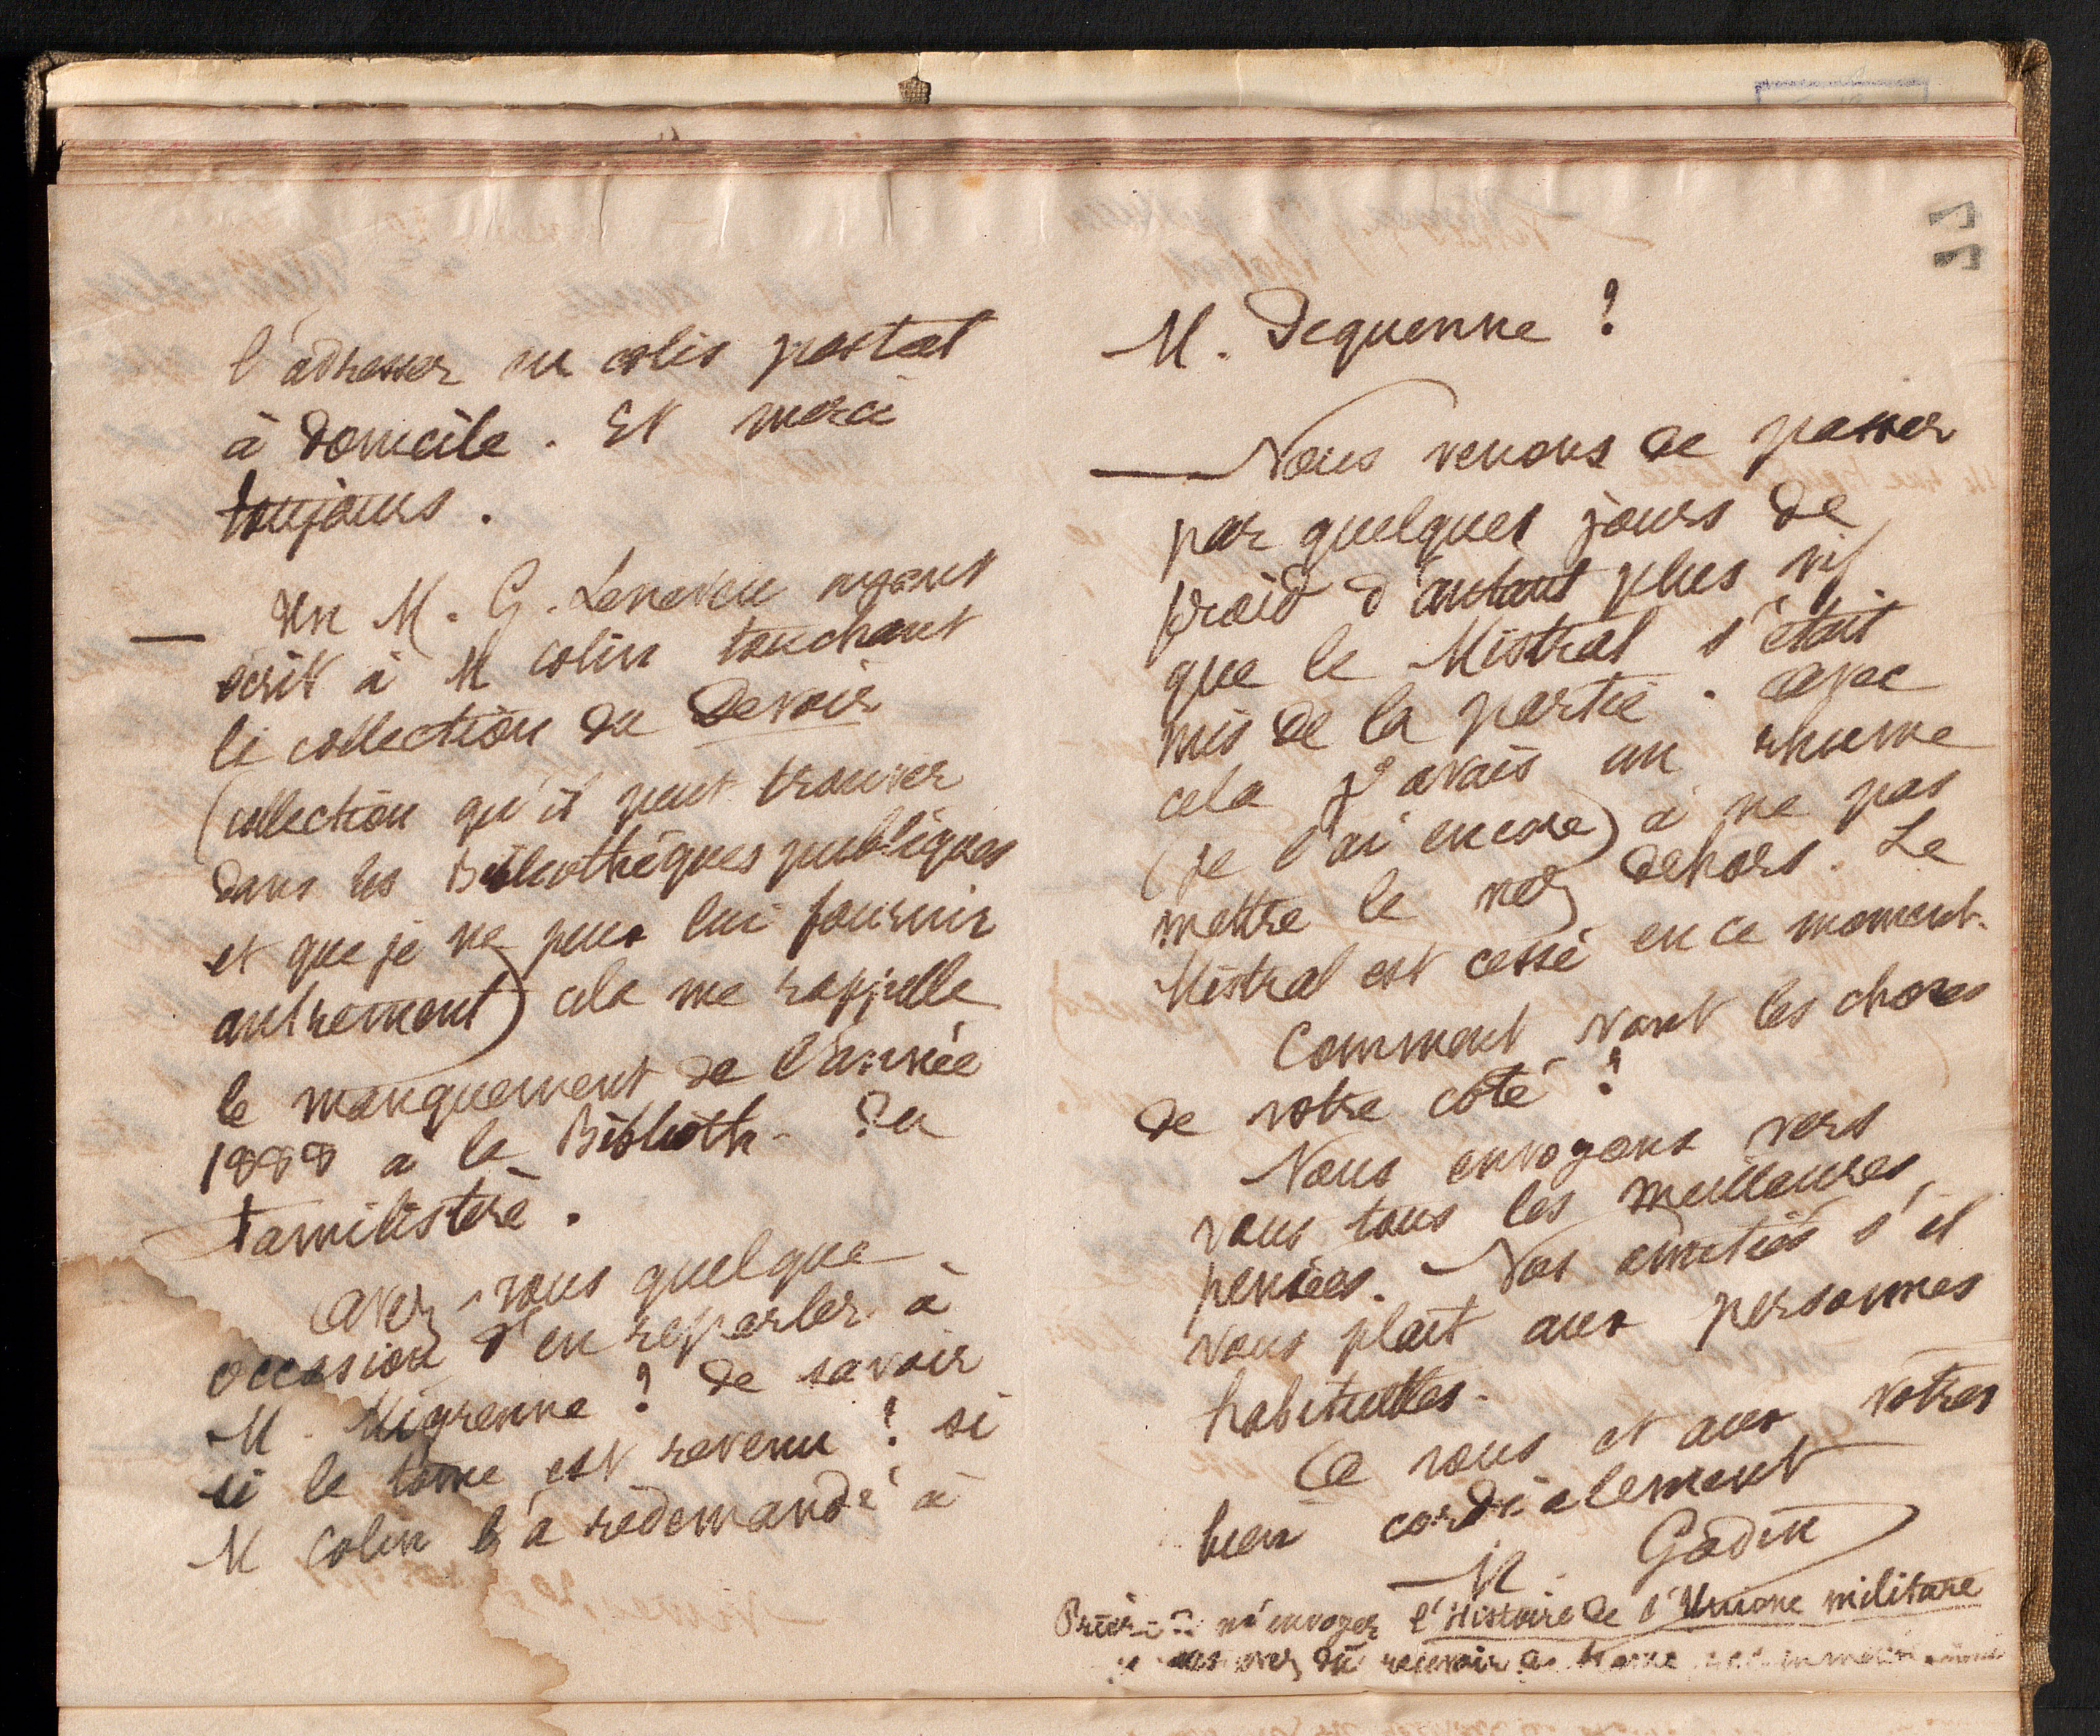 l'adresser en colis postal
à domicile. Et merci
toujours.
— Un M. G. Leneveu ayant
écrit à M Colin touchant
la collection du Devoir
(collection qu'il peut trouver
dans les Bibliothèques publiques
et que je ne peux lui fournir
autrement) cela me rappelle
le manquement de l'année
1888 à la Biblioth. du
Familistère.
Avez-vous quelque
occasion d'en reparler à
M. Migrenne? de savoir
si le tome est revenu? si
M Colin l'a redemandé à
M. Dequenne?
— Nous venons de passer
par quelques jours de
froid d'autant plus vif
que le Mistral s'était
mis de la partie. Avec
cela j'avais un rhume
(je l'ai encore) à ne pas
mettre le nez dehors. Le
Mistral est cessé en ce moment.
Comment vont les choses
de votre côté?
Nous envoyons vers
vous tous les meilleures
pensées. Nos amitiés s'il
vous plait aux personnes
habituelles.
A vous et aux vôtres
bien cordialement
M. Godin
Prière de m'envoyer l'Histoire de l'Urione militare
vous avez dû recevoir